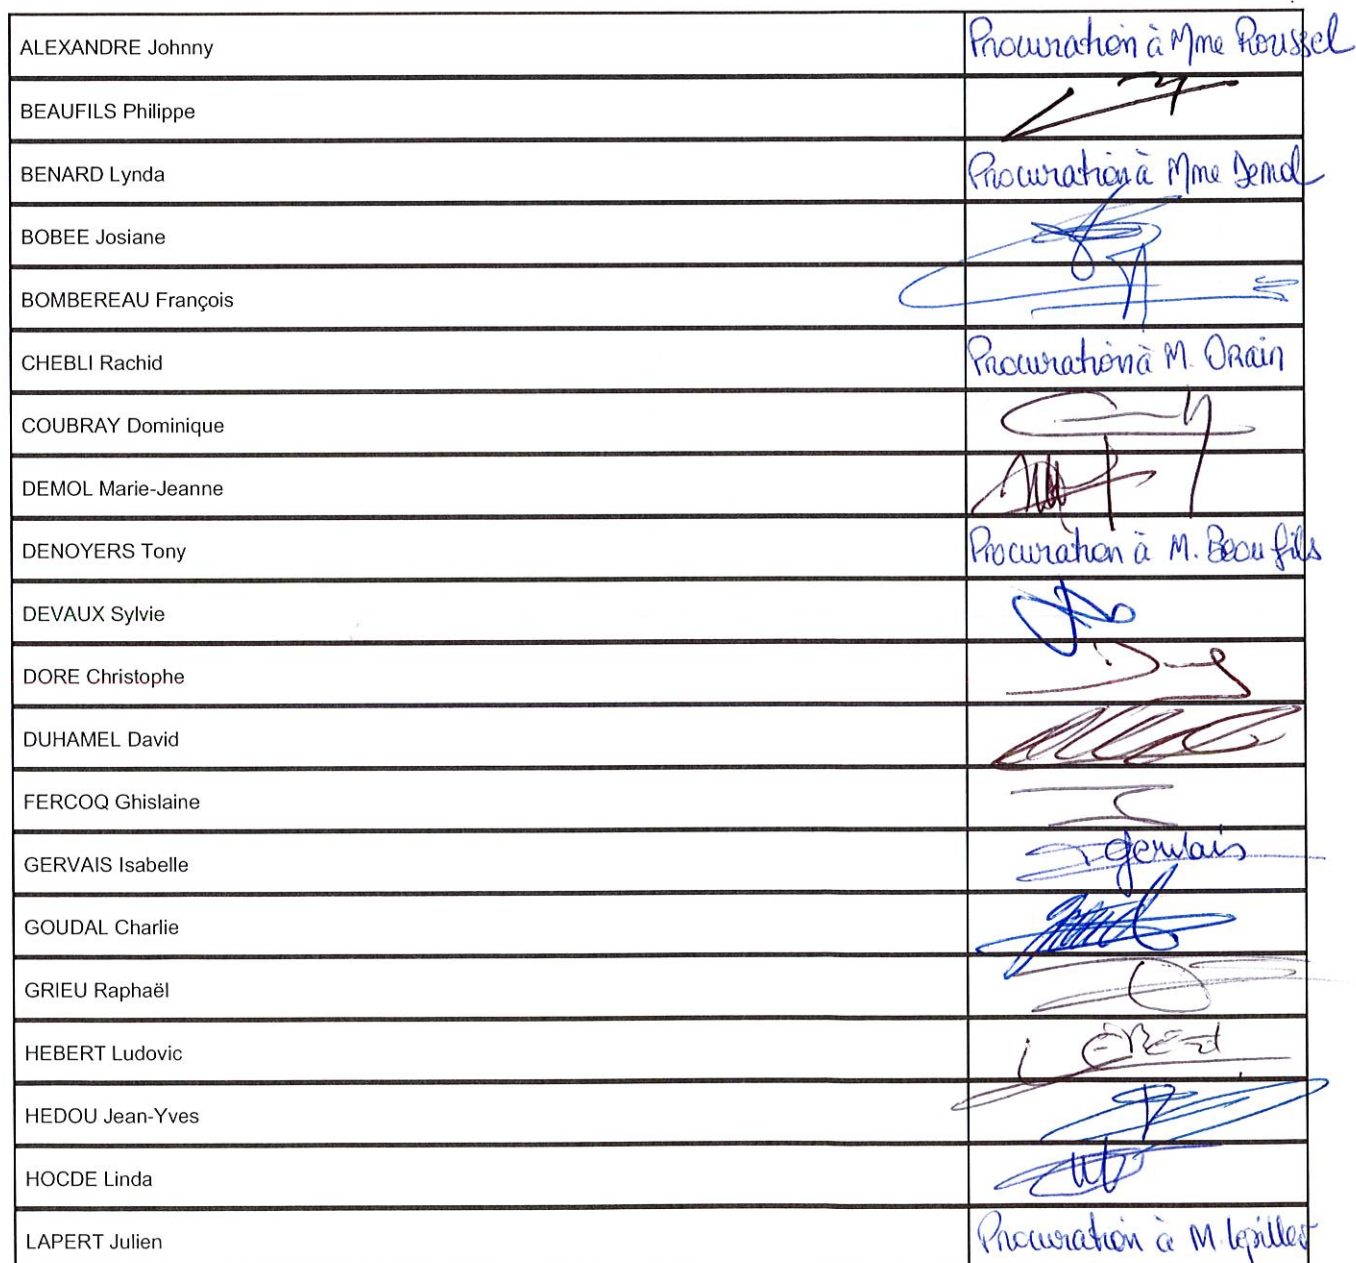 ALEXANDRE Johnny Procuration à Mme Roussel
BEAUFILS Philippe
BENARD Lynda Procuration à Mme Demol
BOBEE Josiane
BOMBEREAU François
CHEBLI Rachid Procuration à M. Orain
COUBRAY Dominique
DEMOL Marie-Jeanne
DENOYERS Tony Procuration à M. Beaufils
DEVAUX Sylvie
DORE Christophe
DUHAMEL David
FERCOQ Ghislaine
GERVAIS Isabelle gervais
GOUDAL Charlie
GRIEU Raphaël
HEBERT Ludovic
HEDOU Jean-Yves
HOCDE Linda
LAPERT Julien Procuration à M.